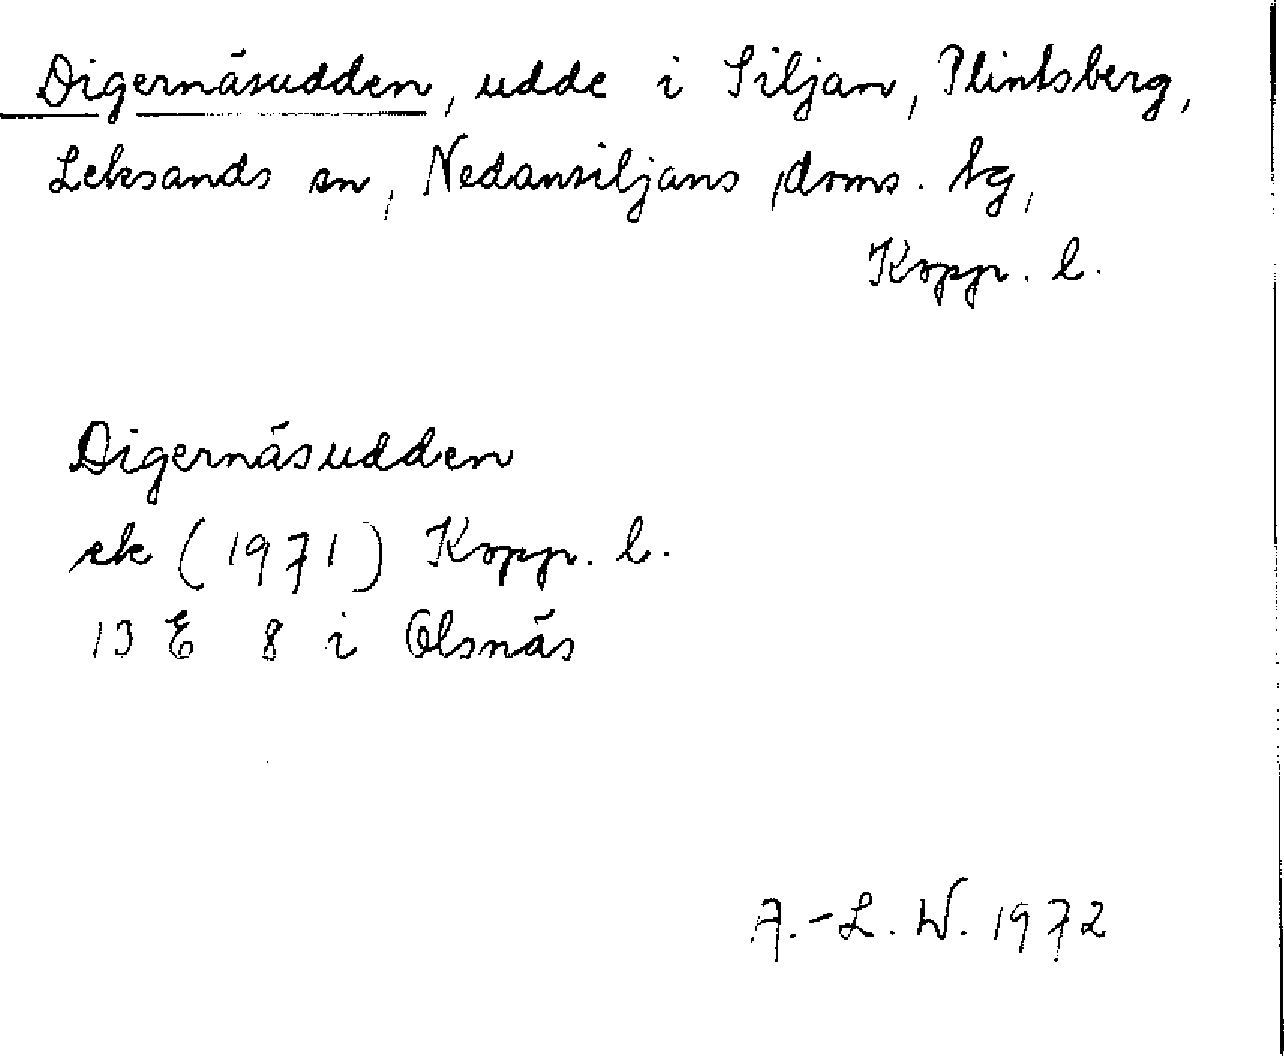 Digernäsudden, udde i Siljan, Plintsberg,
Leksands sn, Nedansiljans doms. tg,
Kopp. l.
Digernäsudden
ek (1971) Kopp. l.
13 E 8 i Olsnäs
A.-L. W. 1972